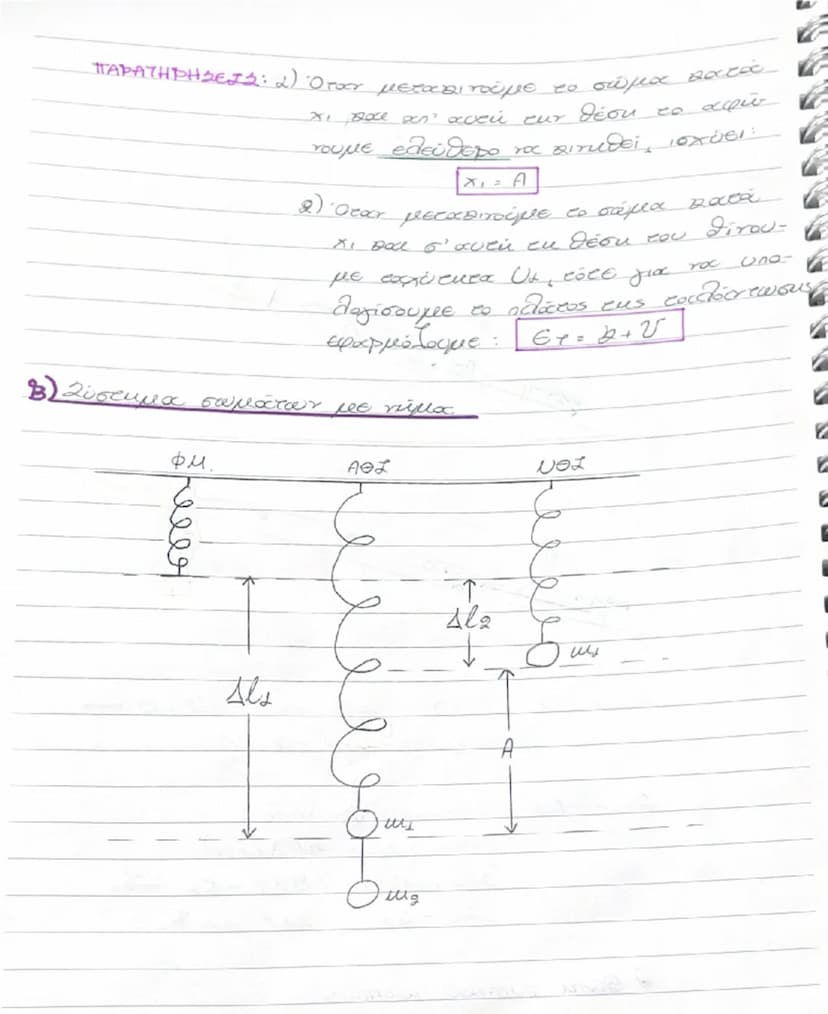 ΠΑΡΑΤΗΡΗΣΕΙΣ: 1) Όταν μετακινούμε το σώμα κατά
x₁ και απ' αυτή την θέση το αφή-
νουμε ελεύθερο να κινηθεί, ισχύει:
x₁ = A
2) Όταν μετακινούμε το σώμα κατά
x₁ και σ' αυτή τη θέση του δίνου-
με ταχύτητα υ₁, τότε για να υπο-
λογίσουμε το πλάτος της ταλάντωσης
εφαρμόζουμε: Eτ = k + U
B) Σύστημα σωμάτων με νήμα
ΦΜ. ΑΘΙ ΝΘΙ
Δl₂
m₁
Δl₁
A
m₁
m₂